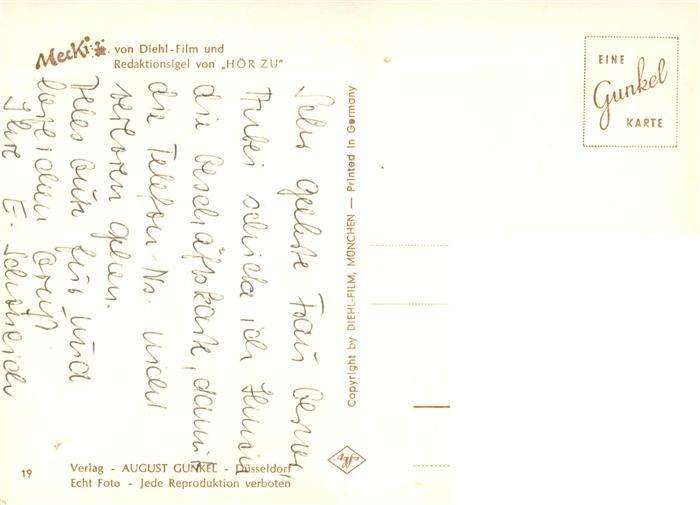 Mecki von Diehl-Film und
Redaktionsigel von „HÖR ZU"
EINE
Gunkel
KARTE
Sehr geehrte Frau
Anbei schicke ich Ihnen
die Geschäftskarte, damit
die Telefon-Nr. nicht
verloren gehen.
Alles Gute für und
herzlichen Gruß
Ihre E.
Copyright by DIEHL-FILM, MÜNCHEN — Printed in Germany
19
Verlag - AUGUST GUNKEL - Düsseldorf
Echt Foto - Jede Reproduktion verboten
Agfa